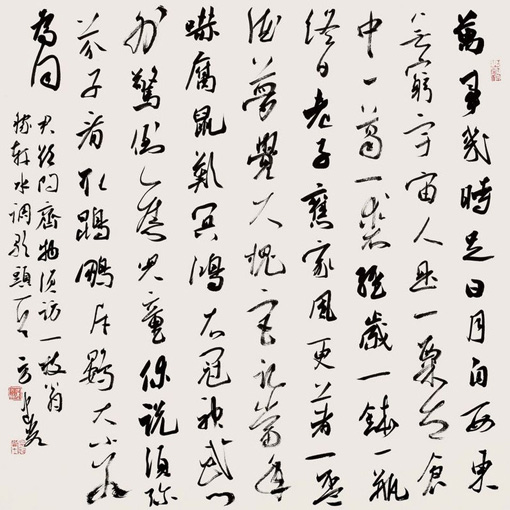 萬事幾時足日月自西東
無窮宇宙人是一粟太倉
中一葛一裘經歲一鉢一瓶
終日老子舊家風更著一盃
酒夢覺大槐宮記當年
嚇腐鼠歎冥鴻衣冠神武門
外驚倒幾兒童休說須彌
芥子看取鵾鵬斥鷃大小若
為同
君欲論齊物須訪一枝翁
稼軒水調歌頭